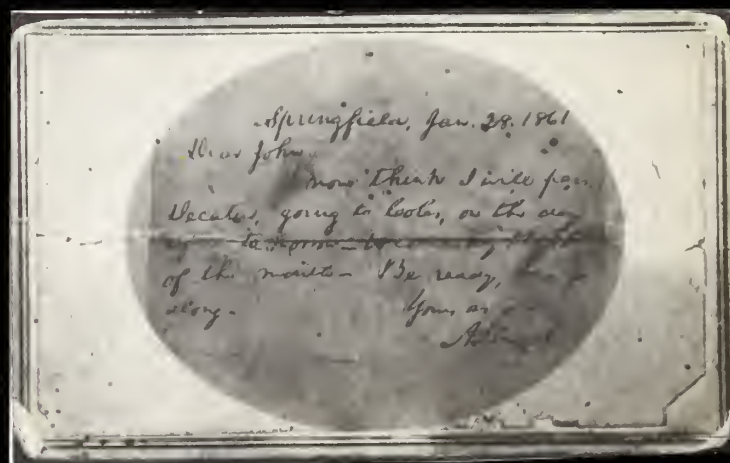 Springfield, Jan. 28. 1861
Dear John
now think I will pass
Decatur, going to Coles, on the day
after to-morrow
of the month— Be ready,
along. Yours as